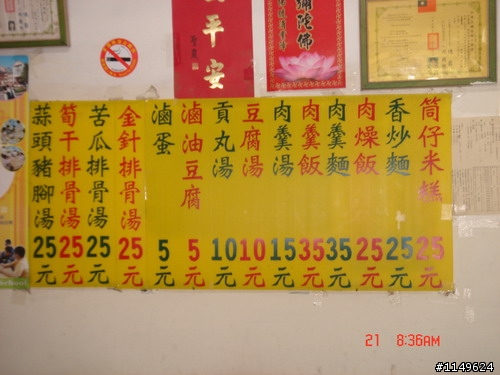 平安
彌陀佛
筒仔米糕 25元
香炒麵 25元
肉燥飯 25元
肉羹麵 35元
肉羹飯 35元
肉羹湯 15元
豆腐湯 10元
貢丸湯 10元
滷油豆腐 5元
滷蛋 5元
金針排骨湯 25元
苦瓜排骨湯 25元
筍干排骨湯 25元
蒜頭豬腳湯 25元
21 8:36AM
#1149624